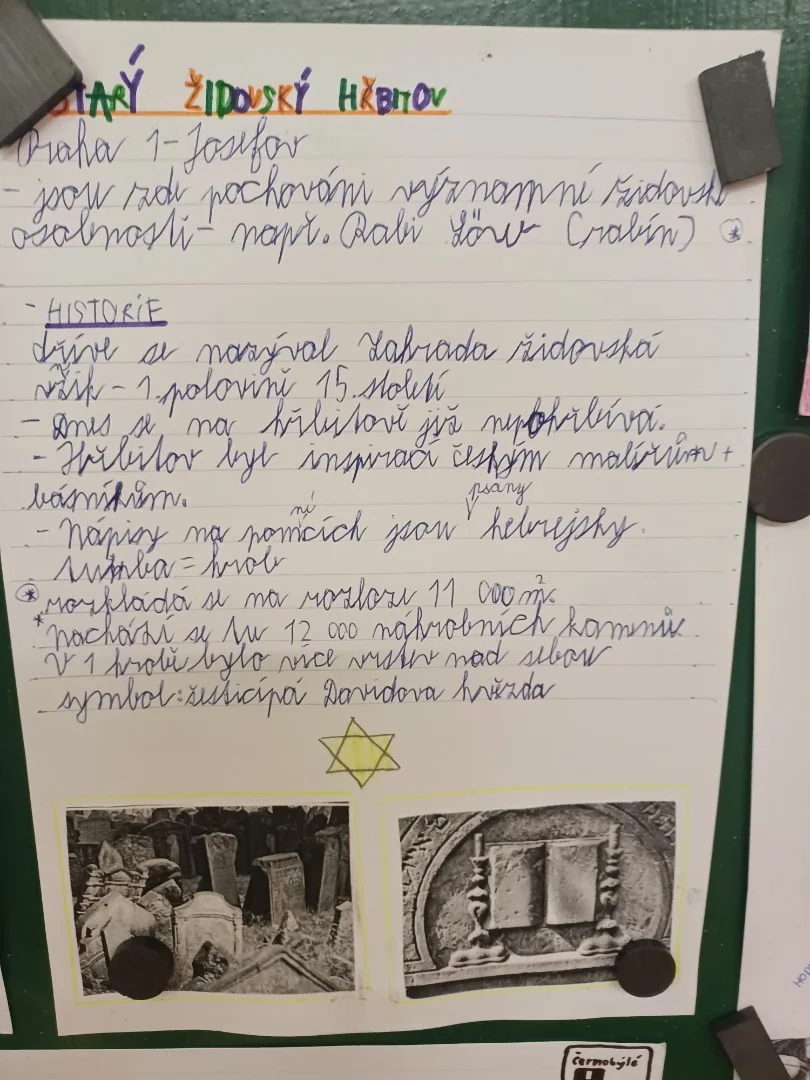 STARÝ ŽIDOVSKÝ HŘBITOV
Praha 1-Josefov
- jsou zde pochováni významné židovské
osobnosti- např. Rabi Löw (rabín) *
- HISTORIE
dříve se nazýval Zahrada židovská
vznik - 1. polovině 15. století
- Dnes se na hřbitově již nepohřbívá.
- Hřbitov byl inspirací českým malířům +
básníkům.
- Nápisy na pomnících jsou psány hebrejsky.
tumba = hrob
* rozkládá se na rozloze 11 000 m².
* nachází se tu 12 000 náhrobních kamenů
V 1 hrobě bylo více vrstev nad sebou
symbol: šesticípá Davidova hvězda
černobýlé